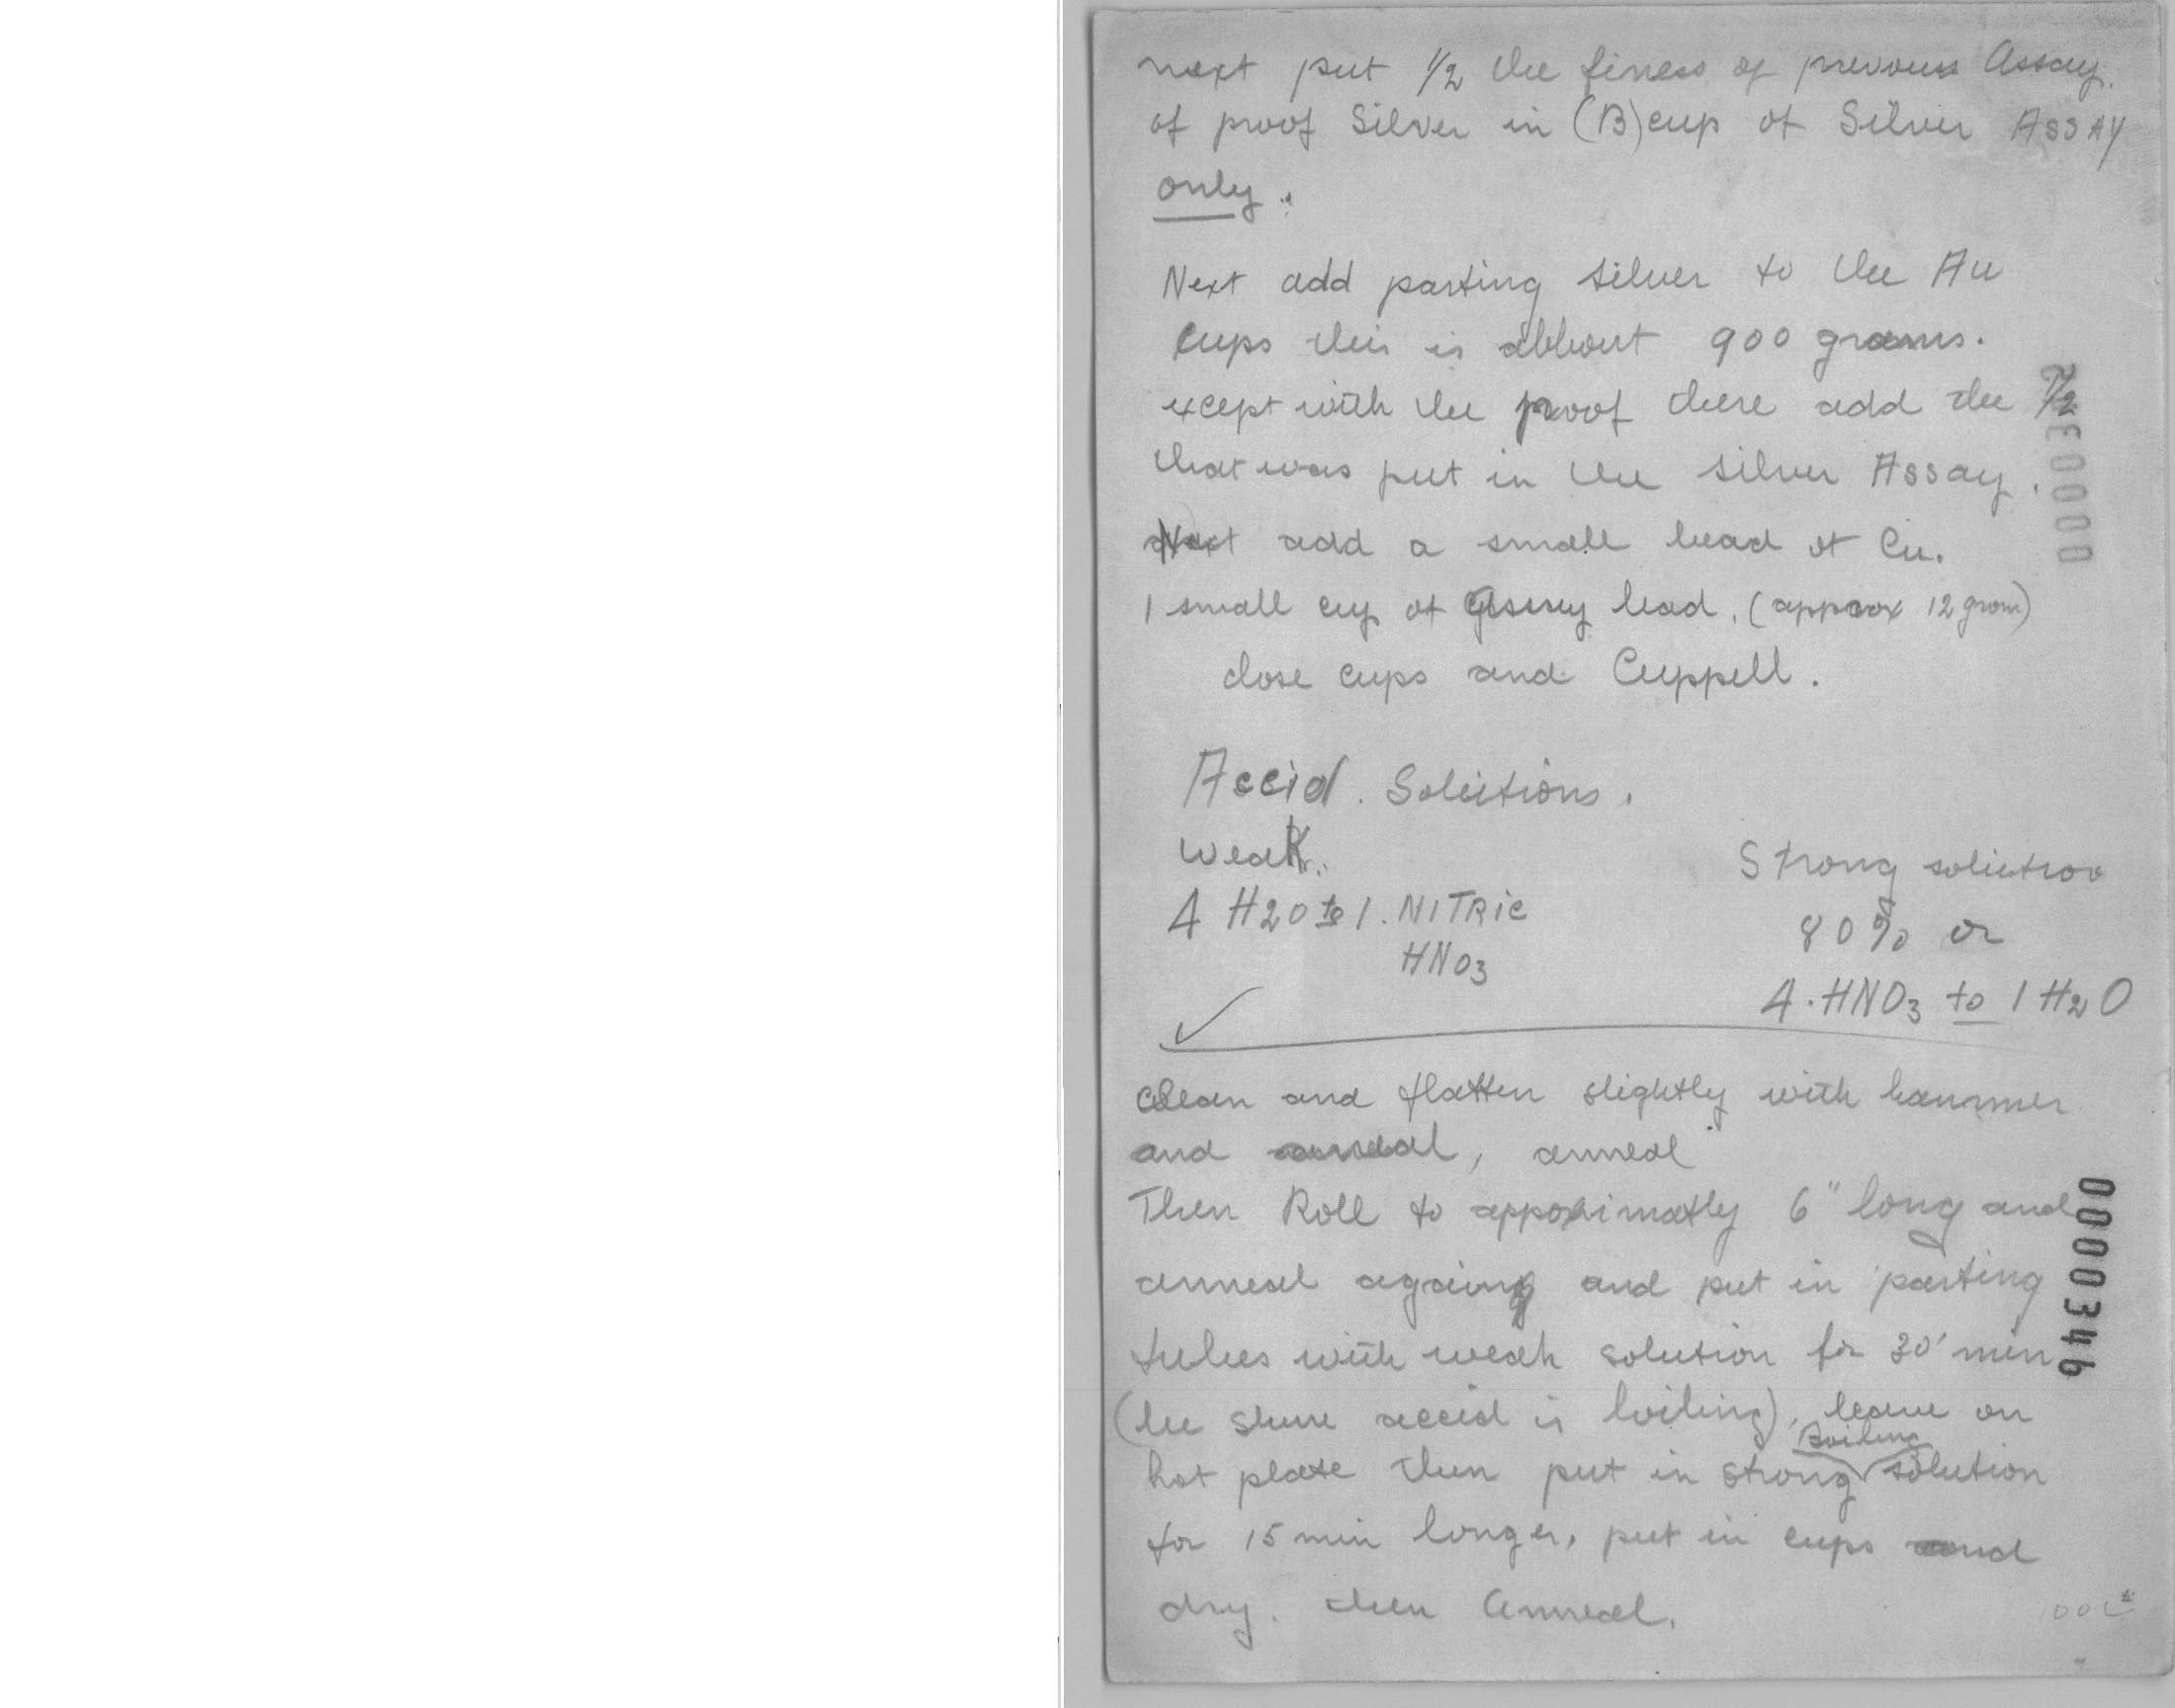 next put 1/2 the finess of prevous Assay.
of proof Silver in (B) cup of Silver ASSAY
only.
Next add parting silver to the Au
Cups this is abbout 900 grams.
except with the proof there add the 1/2
that was put in the silver Assay.
Next add a small bead of Cu.
1 small cup of Assay lead. (approx 12 gram)
close cups and Cuppell.
Accid. Solutions.
weak.
Strong solution
4 H2O to 1. NITRIC
HNO3
80% or
4. HNO3 to 1 H2O
clean and flatten slightly with hammer
and anneal, anneal
Then Roll to approximatly 6" long and
anneal again and put in parting
tubes with weak solution for 30' min
(be shure accid is boiling), leave on
hot plate then put in strong Boiling solution
for 15 min longer, put in cups and
dry. then Anneal.
0000346